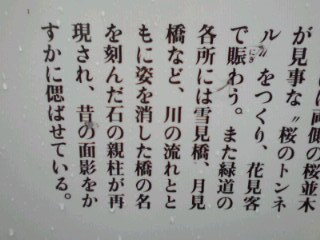 は両側の桜並木
が見事な〝桜のトンネ
ル〟をつくり、花見客
で賑わう。また緑道の
にぎ
各所には雪見橋、月見
橋など、川の流れとと
もに姿を消した橋の名
を刻んだ石の親柱が再
現され、昔の面影をか
すかに偲ばせている。